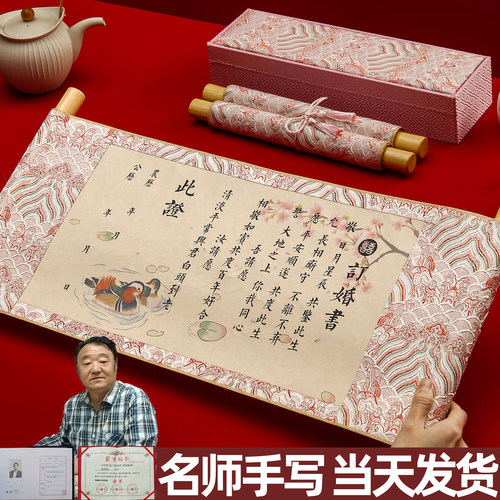 訂婚書
敬 日月星辰 共鑒此生
允 長相廝守 不離不弃
平安順遂 共度此生
誓 大地之上 你我同心
吾請愿
相敬如賓共度百年好合
汝請愿
與君白頭到老
此證
農曆 年 月 日
公曆 年 月 日
名师手写 当天发货